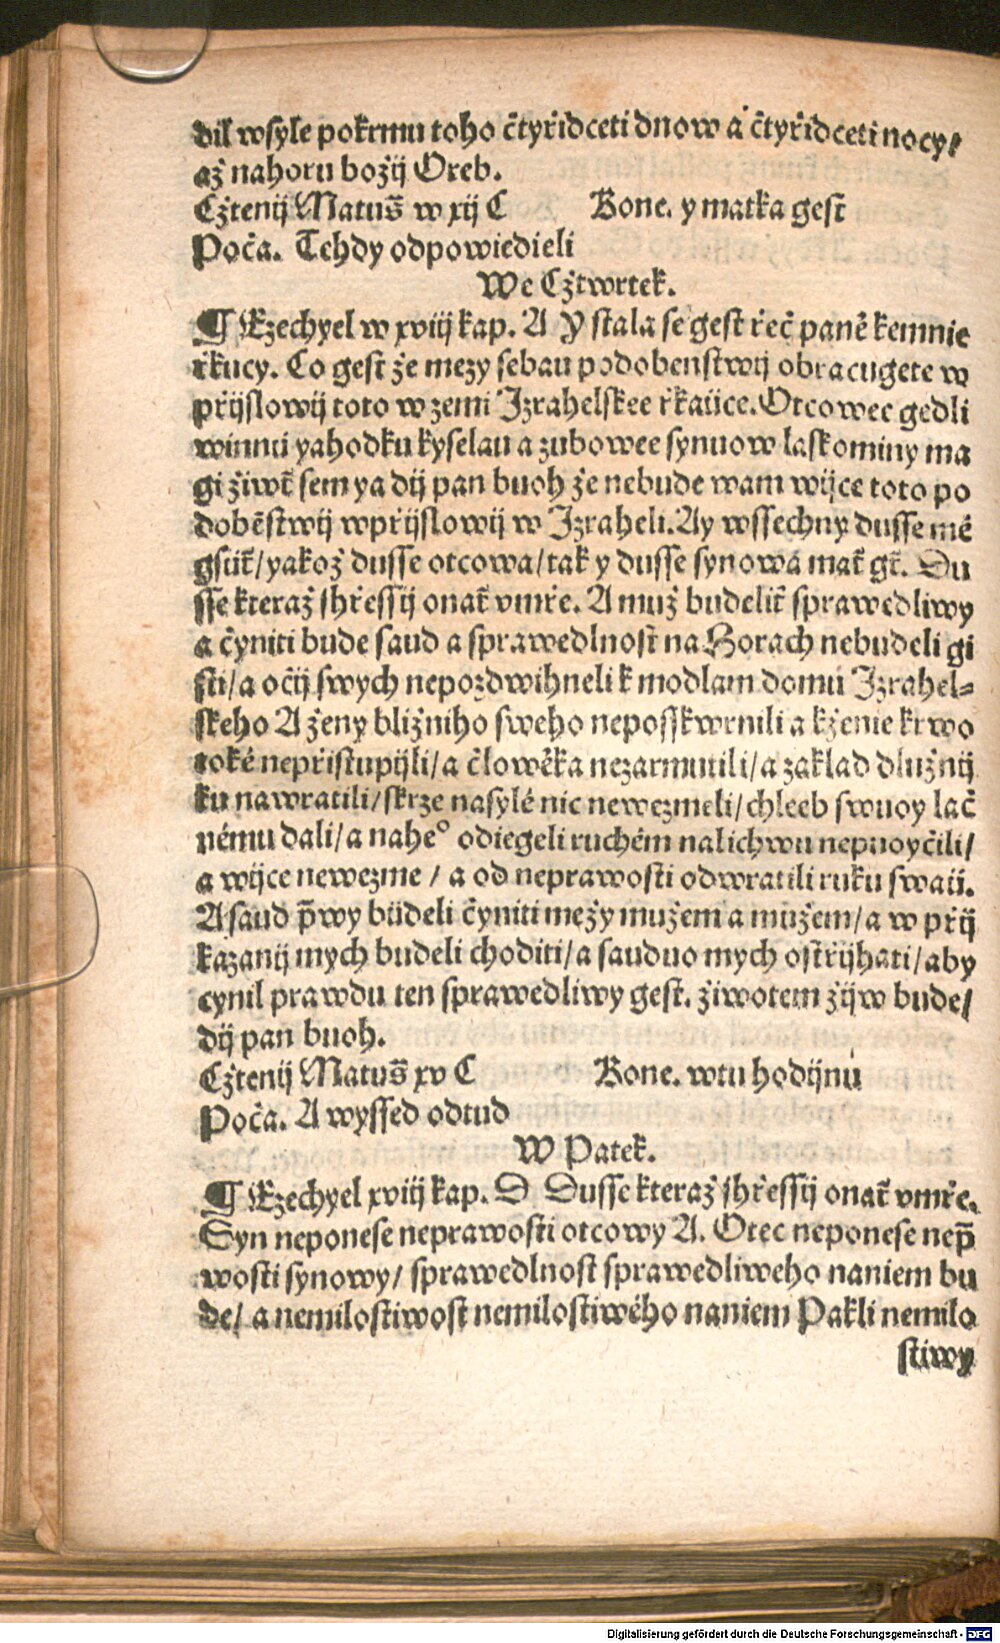 dil wsyle pokrmu toho čtyřidceti dnow a čtyřidceti nocy/
až nahoru božij Oreb.
Cžtenij Matuš w xij C Kone. y matka gest̄
Poča. Tehdy odpowiedieli
We Cžtwrtek.
¶ Ezechyel w xviij kap. A Y stala se gest řeč panē kemnie
řkucy. Co gest že mezy sebau podobenstwij obracugete w
přijslowij toto w zemi Izrahelskee řkaüce. Otcowee gedli
winnu yahodku kyselau a zubowee synuow laskominy ma
gi žiwt̄ sem ya dij pan buoh že nebude wam wijce toto po
dobēstwij wpřijslowij w Izraheli. Ay wssechny dusse mé
gsüt̄/ yakož dusse otcowa/ tak y dusse synowa mat̄ gt̄. Du
sse kteraž shřessij onat̄ vmře. A muž budelit̄ sprawedliwy
a čyniti bude saud a sprawedlnost̄ na Horach nebudeli gi
sti/ a očij swych nepozdwihneli k modlam domu Izrahel⸗
skeho A ženy bližniho sweho neposskwrnili a kženie krwo
toké nepřistupijli/ a člowěka nezarmutili/ a zaklad dlužnij
ku nawratili/ skrze nasylé nic newezmeli/ chleeb swuoy lač
nému dali/ a naheº odiegeli ruchém nalichwu nepuoyčili/
a wijce newezme / a od neprawosti odwratili ruku swaü.
A saud p̄wy büdeli čyniti mežy mužem a mužem/ a w přij
kazanij mych budeli choditi/ a sauduo mych ostřijhati/ aby
cynil prawdu ten sprawedliwy gest. žiwotem žijw bude/
dij pan buoh.
Cžtenij Matuš xv C Kone. wtu hodijnu
Poča. A wyssed odtud
W Patek.
¶ Ezechyel xviij kap. D Dusse kteraž shřessij onat̄ vmře.
Syn neponese neprawosti otcowy A. Otec neponese nep̄
wosti synowy/ sprawedlnost sprawedliweho naniem bu
de/ a nemilostiwost nemilostiwého naniem Pakli nemilo
stiwy
Digitalisierung gefördert durch die Deutsche Forschungsgemeinschaft - DFG